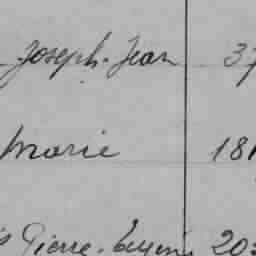 Joseph-Jean 37
Marie 181
Pierre-Eugène 20